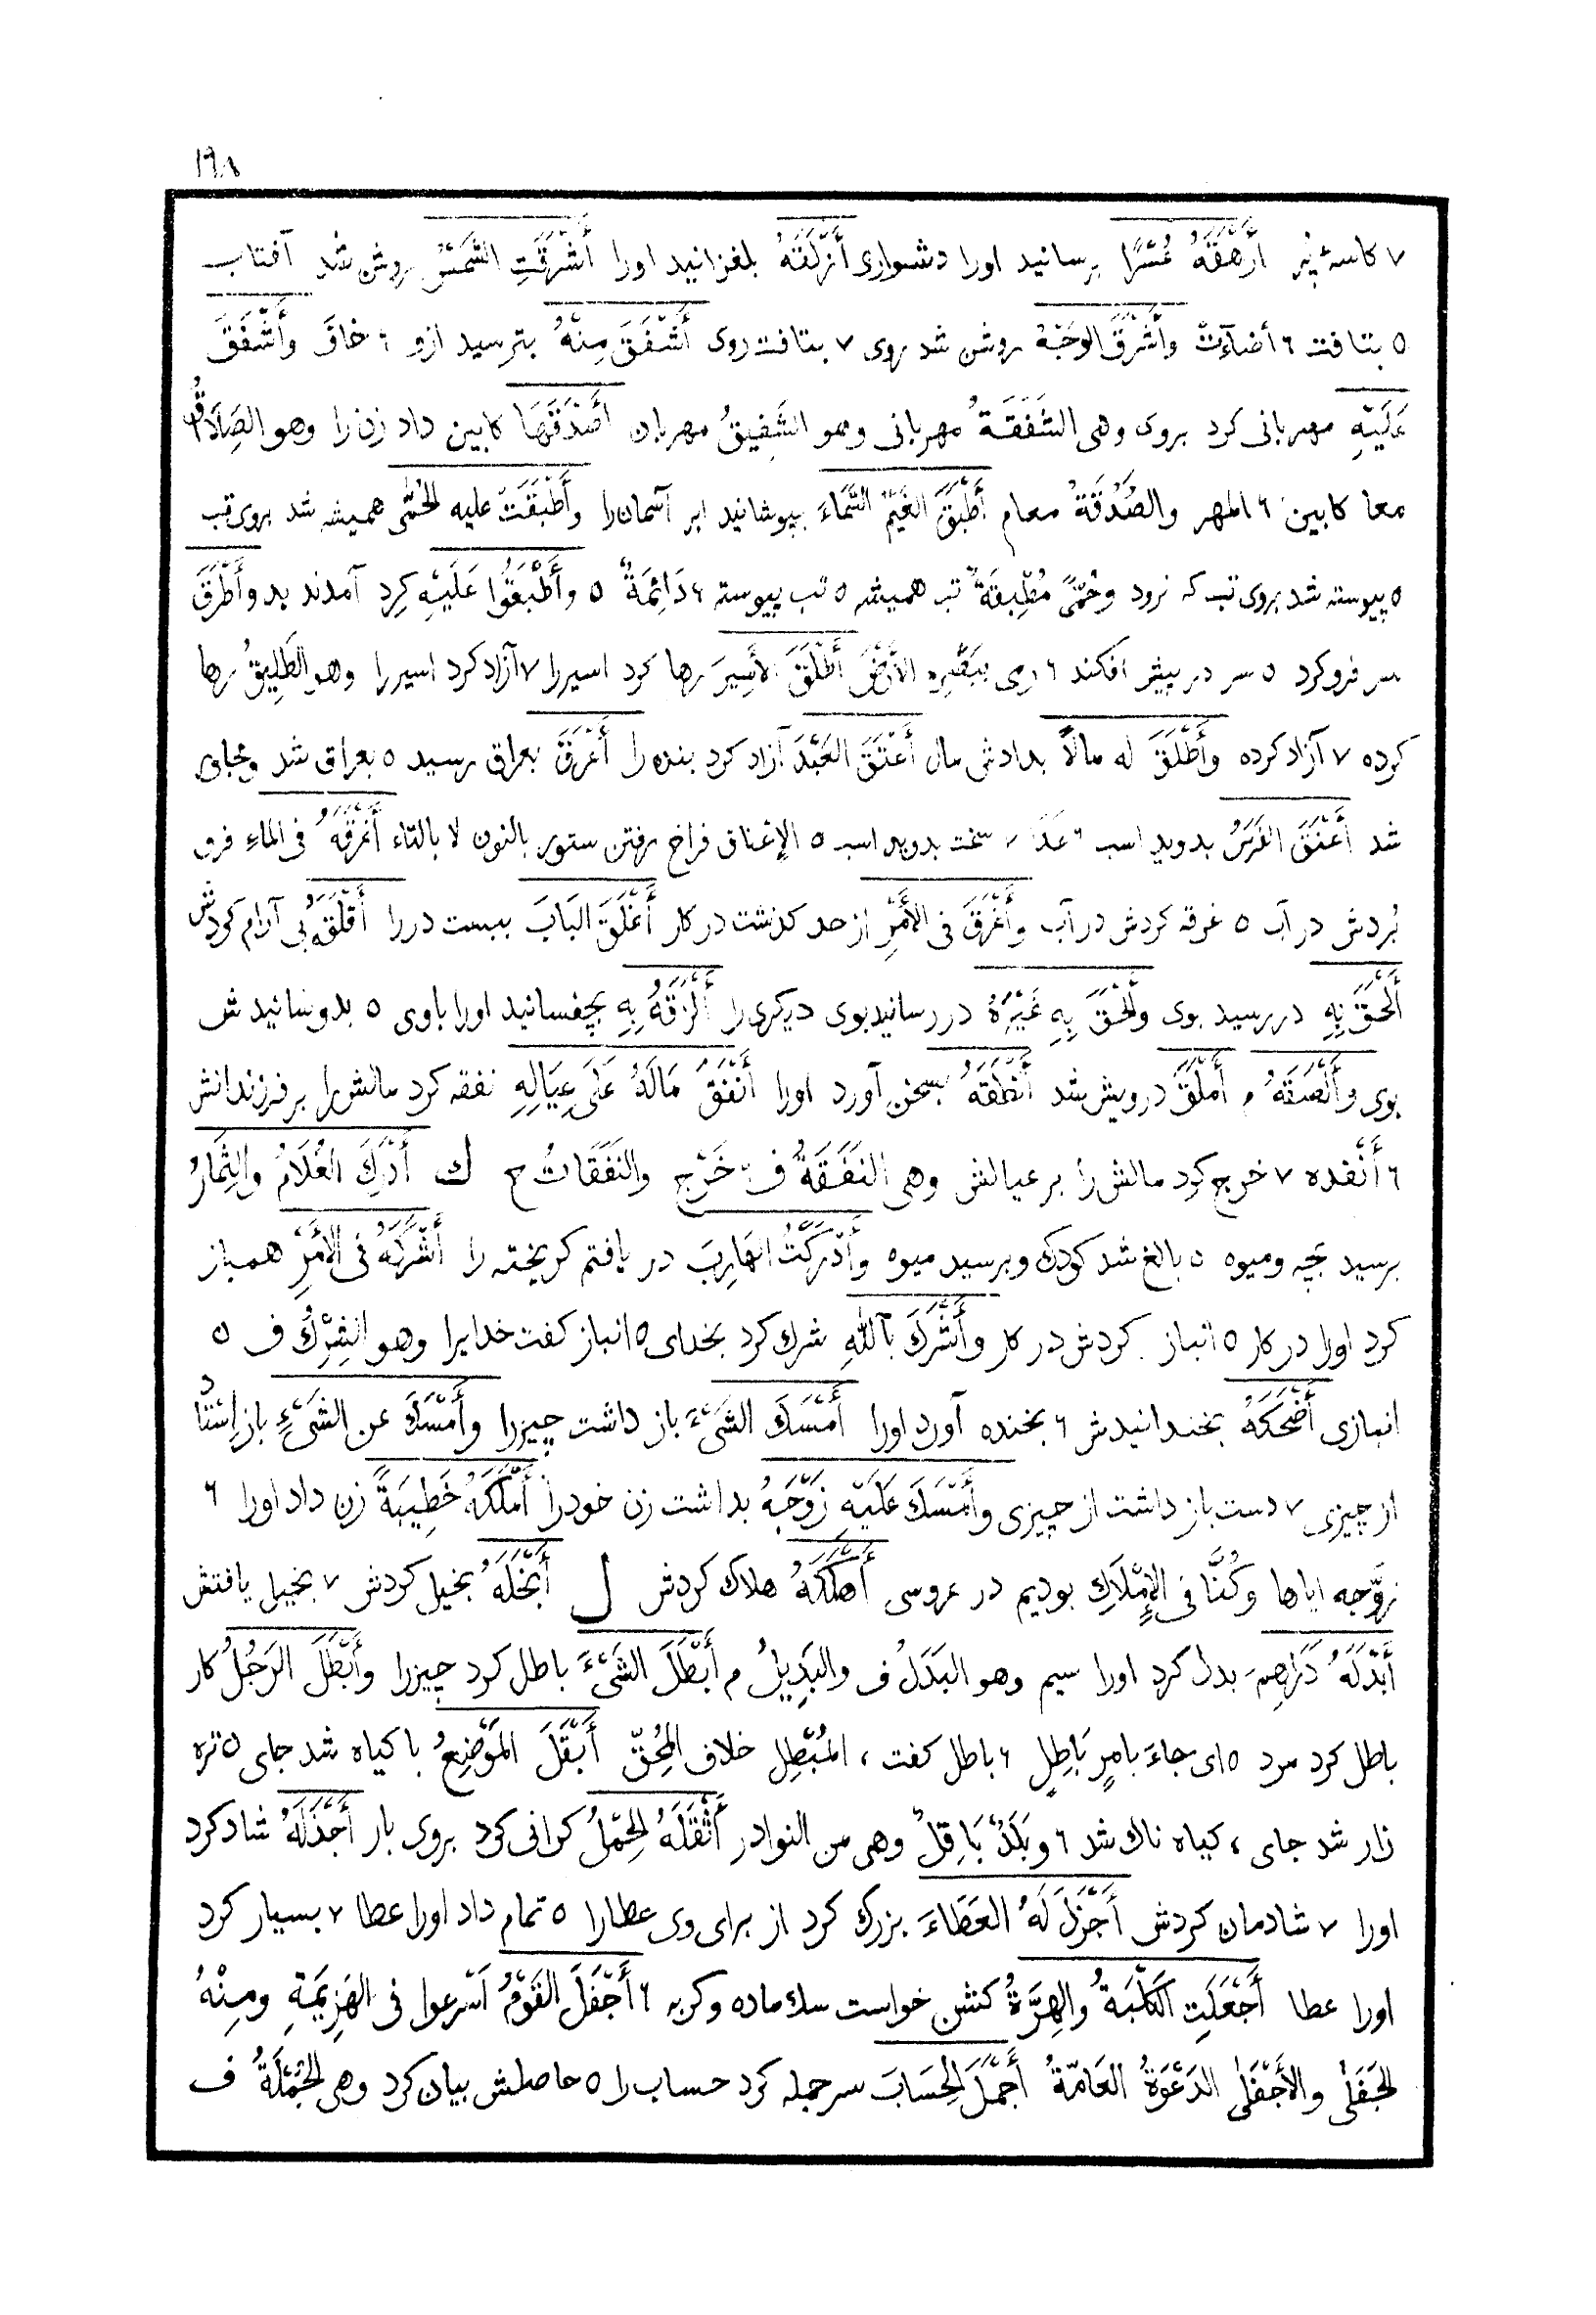 ١٩٨
٧ كاسهٔ پر أَرْهَقَهُ عُسْرًا برسانید اورا دشواری أَزْلَقَهُ بلغزانید اورا أَشْرَقَتِ الشَّمْسُ روشن شد آفتاب
٥ بتافت ٦ أضاءَتْ وأَشْرَقَ الوَجْهُ روشن شد روی ٧ بتافت روی أَشْفَقَ مِنْهُ بترسید ازو ٦ خافَ وأَشْفَقَ
عَلَيْهِ مهربانی کرد بروی وهی الشَفَقَةُ مهربانی وهو الشَفِيقُ مهربان أَصْدَقَهَا کابین داد زن را وهو الصَِدَاقُ
معا کابین ٦ المهر والصُدْقَةُ معام أَطْبَقَ الغَيْمُ السَّمَاءَ بپوشانید ابر آسمان را وأَطْبَقَتْ عليه الحُمَّى همیشه شد بروی تب
٥ پیوسته شد بروی تب که نرود وحُمَّى مُطْبِقَةٌ تب همیشه ٥ تب پیوسته ٦ دَائِمَةٌ ٥ وأَطْبَقُوا عَلَيْهِ گرد آمدند بدو أَطْرَقَ
سر فرو کرد ٥ سر در پیش افکند ٦ رمى بِبَصَرِهِ الأَرْضَ أَطْلَقَ الأَسِيرَ رها کرد اسیر را ٧ آزاد کرد اسیر را وهو الطَلِيقُ رها
کرده ٧ آزاد کرده وأَطْلَقَ له مالاً بدادش مال أَعْتَقَ العَبْدَ آزاد کرد بنده را أَعْرَقَ بعراق رسید ٥ بعراق شد وبجای
شد أَعْنَقَ الفَرَسُ بدوید اسب ٦ عَدَا ٧ سخت بدوید اسب ٥ الإعناق فراخ رفتن ستور بالنون لا بالتاء أَغْرَقَهُ فی الماءِ فرو
بُردش در آب ٥ غرقه کردش در آب وأَغْرَقَ فی الأَمْرِ از حد گذشت در کار أَغْلَقَ البَابَ ببست در را أَقْلَقَهُ بی آرام کردش
أَلْحَقَ بِهِ در رسید بوی وأَلْحَقَ بِهِ غَيْرَهُ در رسانید بوی دیگری را أَلْزَقَهُ بِهِ بچفسانید اورا باوی ٥ بدوسانیدش
بوی وأَلْصَقَهُ م أَمْلَقَ درویش شد أَنْطَقَهُ بسخن آورد اورا أَنْفَقَ مَالَهُ عَلَى عِيَالِهِ نفقه کرد مالش را بر فرزندانش
٦ أَنْفده ٧ خرج کرد مالش را بر عیالش وهی النَفَقَةُ ف خَرْج والنَفَقَاتُ ج ك أَدْرَكَ الغُلَامُ والثِمَارُ
برسید بچه ومیوه ٥ بالغ شد کودک وبرسید میوه وأَدْرَكْتُ الهَارِبَ در یافتم گریخته را أَشْرَكَهُ فی الأَمْرِ همباز
کرد اورا در کار ٥ انباز کردش در کار وأَشْرَكَ بِاللّٰهِ شرك کرد بخدای ٥ انباز گفت خدایرا وهو الشِرْكُ ف ٥
انبازی أَضْحَكَهُ بخندانیدش ٦ بخنده آورد اورا أَمْسَكَ الشَىْءَ باز داشت چیزرا وأَمْسَكَ عن الشَىْءِ باز اِستاد
از چیزی ٧ دست باز داشت از چیزی وأَمْسَكَ عَلَيْهِ زَوْجَهُ بداشت زن خود را أَمْلَكَهُ خَطِيبَةً زن داد اورا ٦
زوّجه اياها وکُنَّا فی الإِمْلَاكِ بودیم در عروسی أَهْلَكَهُ هلاك کردش ل أَبْخَلَهُ بخیل کردش ٧ بخیل یافتش
أَبْدَلَهُ دَرَاهِمَ بدل کرد اورا سیم وهو البَدَلُ ف والبَدِيلُ م أَبْطَلَ الشَىْءَ باطل کرد چیزرا وأَبْطَلَ الرَجُلُ کار
باطل کرد مرد ٥ ای جاءَ بامرٍ بَاطِلٍ ٦ باطل گفت ، المُبْطِل خلاف المُحِقّ أَبْقَلَ المَوْضِعُ با گیاه شد جای ٥ تره
زار شد جای ، گیاه ناك شد ٦ وبَلَدٌ بَاقِلٌ وهی من النوادر أَثْقَلَهُ الحِمْلُ گرانی کرد بروی بار أَجْذَلَهُ شاد کرد
اورا ٧ شادمان کردش أَجْزَلَ لَهُ العَطَاءَ بزرگ کرد از برای وی عطارا ٥ تمام داد اورا عطا ٧ بسیار کرد
اورا عطا أَجْعَلَتِ الكَلْبَةُ والهِرَّةُ گشن خواست سگ ماده وگربه ٦ أَجْفَلَ القَوْمُ أَسْرعوا فی الهَزِيمَةِ ومِنْهُ
الجَفَلَى والأَجْفَلَى الدَعْوَةُ العَامّةُ أَجْمَلَ الحِسَابَ سر جمله کرد حساب را ٥ حاصلش بیان کرد وهی الجُمْلَةُ ف